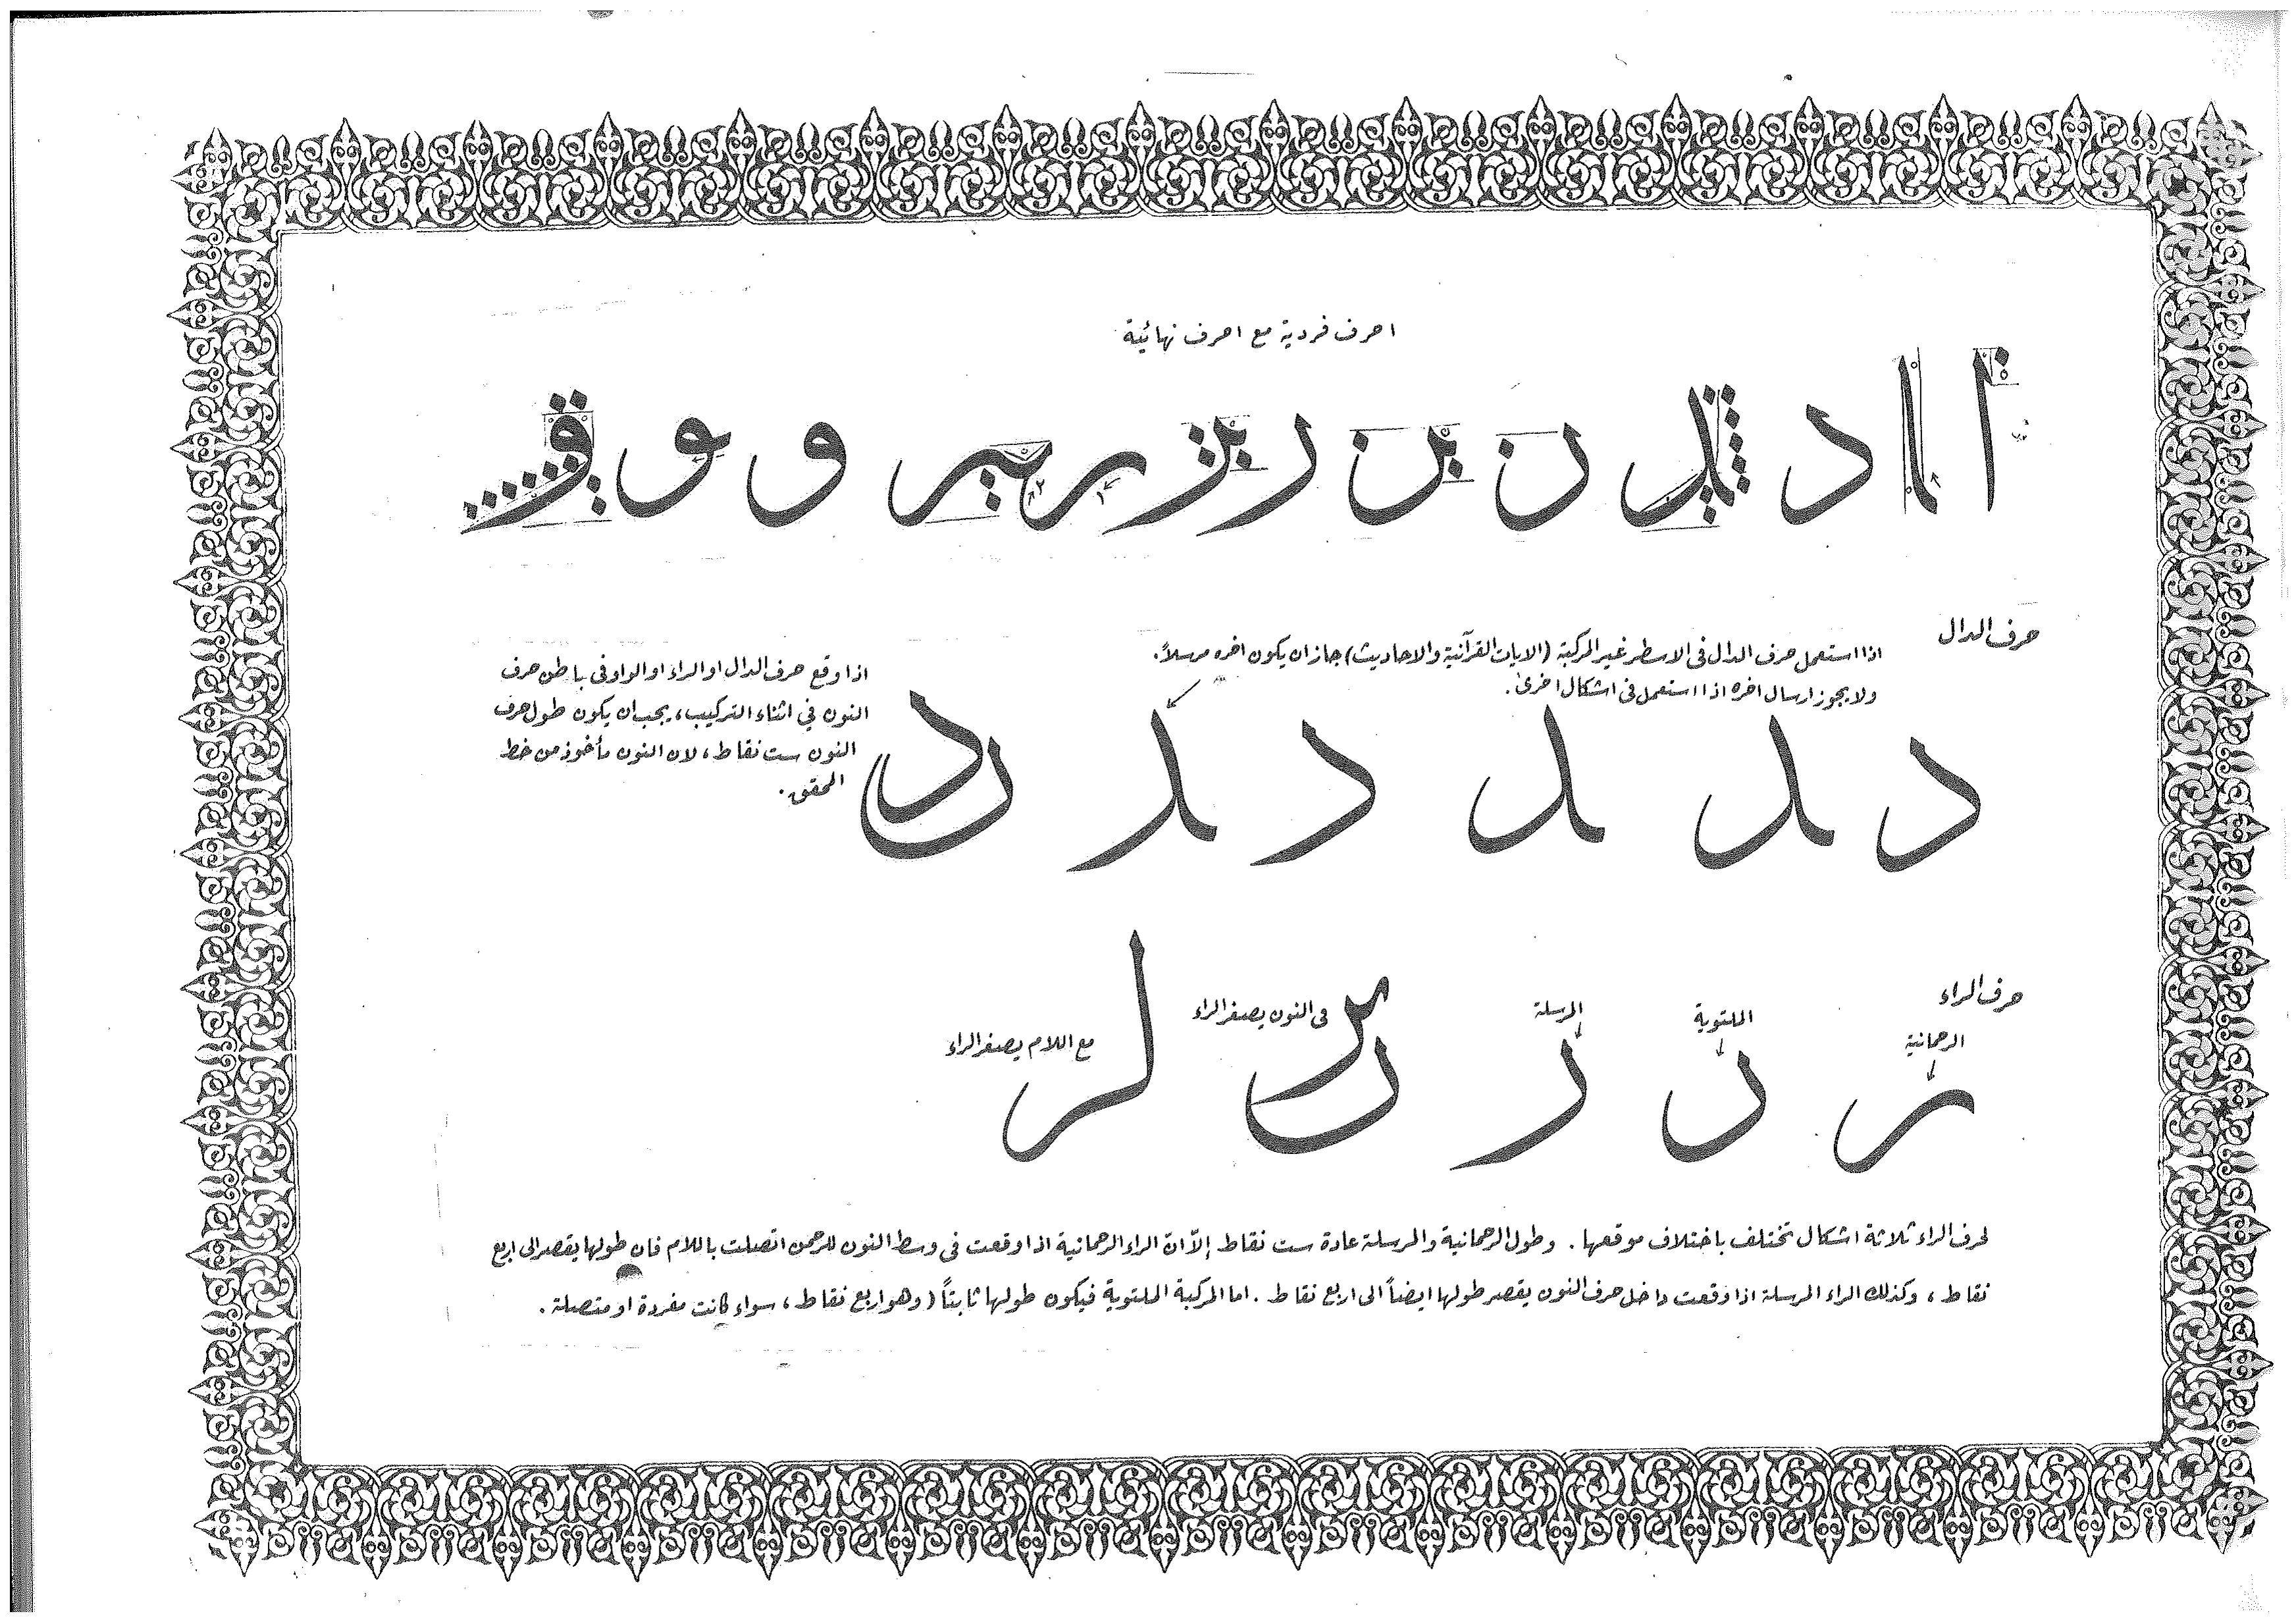 احرف فردية مع احرف نهائية
حرف الدال
اذا استعمل حرف الدال فى الاسطر غير المركبة (الايات القرآنية والاحاديث) جاز ان يكون اخره مرسلاً.
ولا يجوز ارسال اخره اذا استعمل فى اشكال اخرى.
اذا وقع حرف الدال او الراء او الواو فى باطن حرف
النون في اثناء التركيب، يجب ان يكون طول حرف
النون ست نقاط، لان النون مأخوذ من خط
المحقق.
د د د د د
حرف الراء
الرحمانية
الملتوية
المرسلة
فى النون يصغر الراء
مع اللام يصغر الراء
ر ر ر
لر
لحرف الراء ثلاثة اشكال تختلف باختلاف موقعها. وطول الرحمانية والمرسلة عادة ست نقاط إلاّ انّ الراء الرحمانية اذا وقعت فى وسط النون للرحمن اتصلت باللام فان طولها يقصر الى اربع
نقاط، وكذلك الراء المرسلة اذا وقعت داخل حرف النون يقصر طولها ايضاً الى اربع نقاط. اما المركبة الملتوية فيكون طولها ثابتاً (وهو اربع نقاط، سواء كانت مفردة او متصلة.